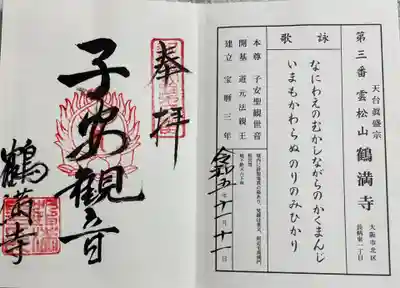 天台眞盛宗
第三番 雲松山 鶴満寺
大阪市北区
長柄東一丁目
詠歌
なにわえのむかしながらのかくまんじ
いまもかわらぬのりのみひかり
本尊 子安聖観世音
開基 道元法親王
建立 宝暦三年
令和五年十一月十一日
奉拝
子安観音
鶴満寺